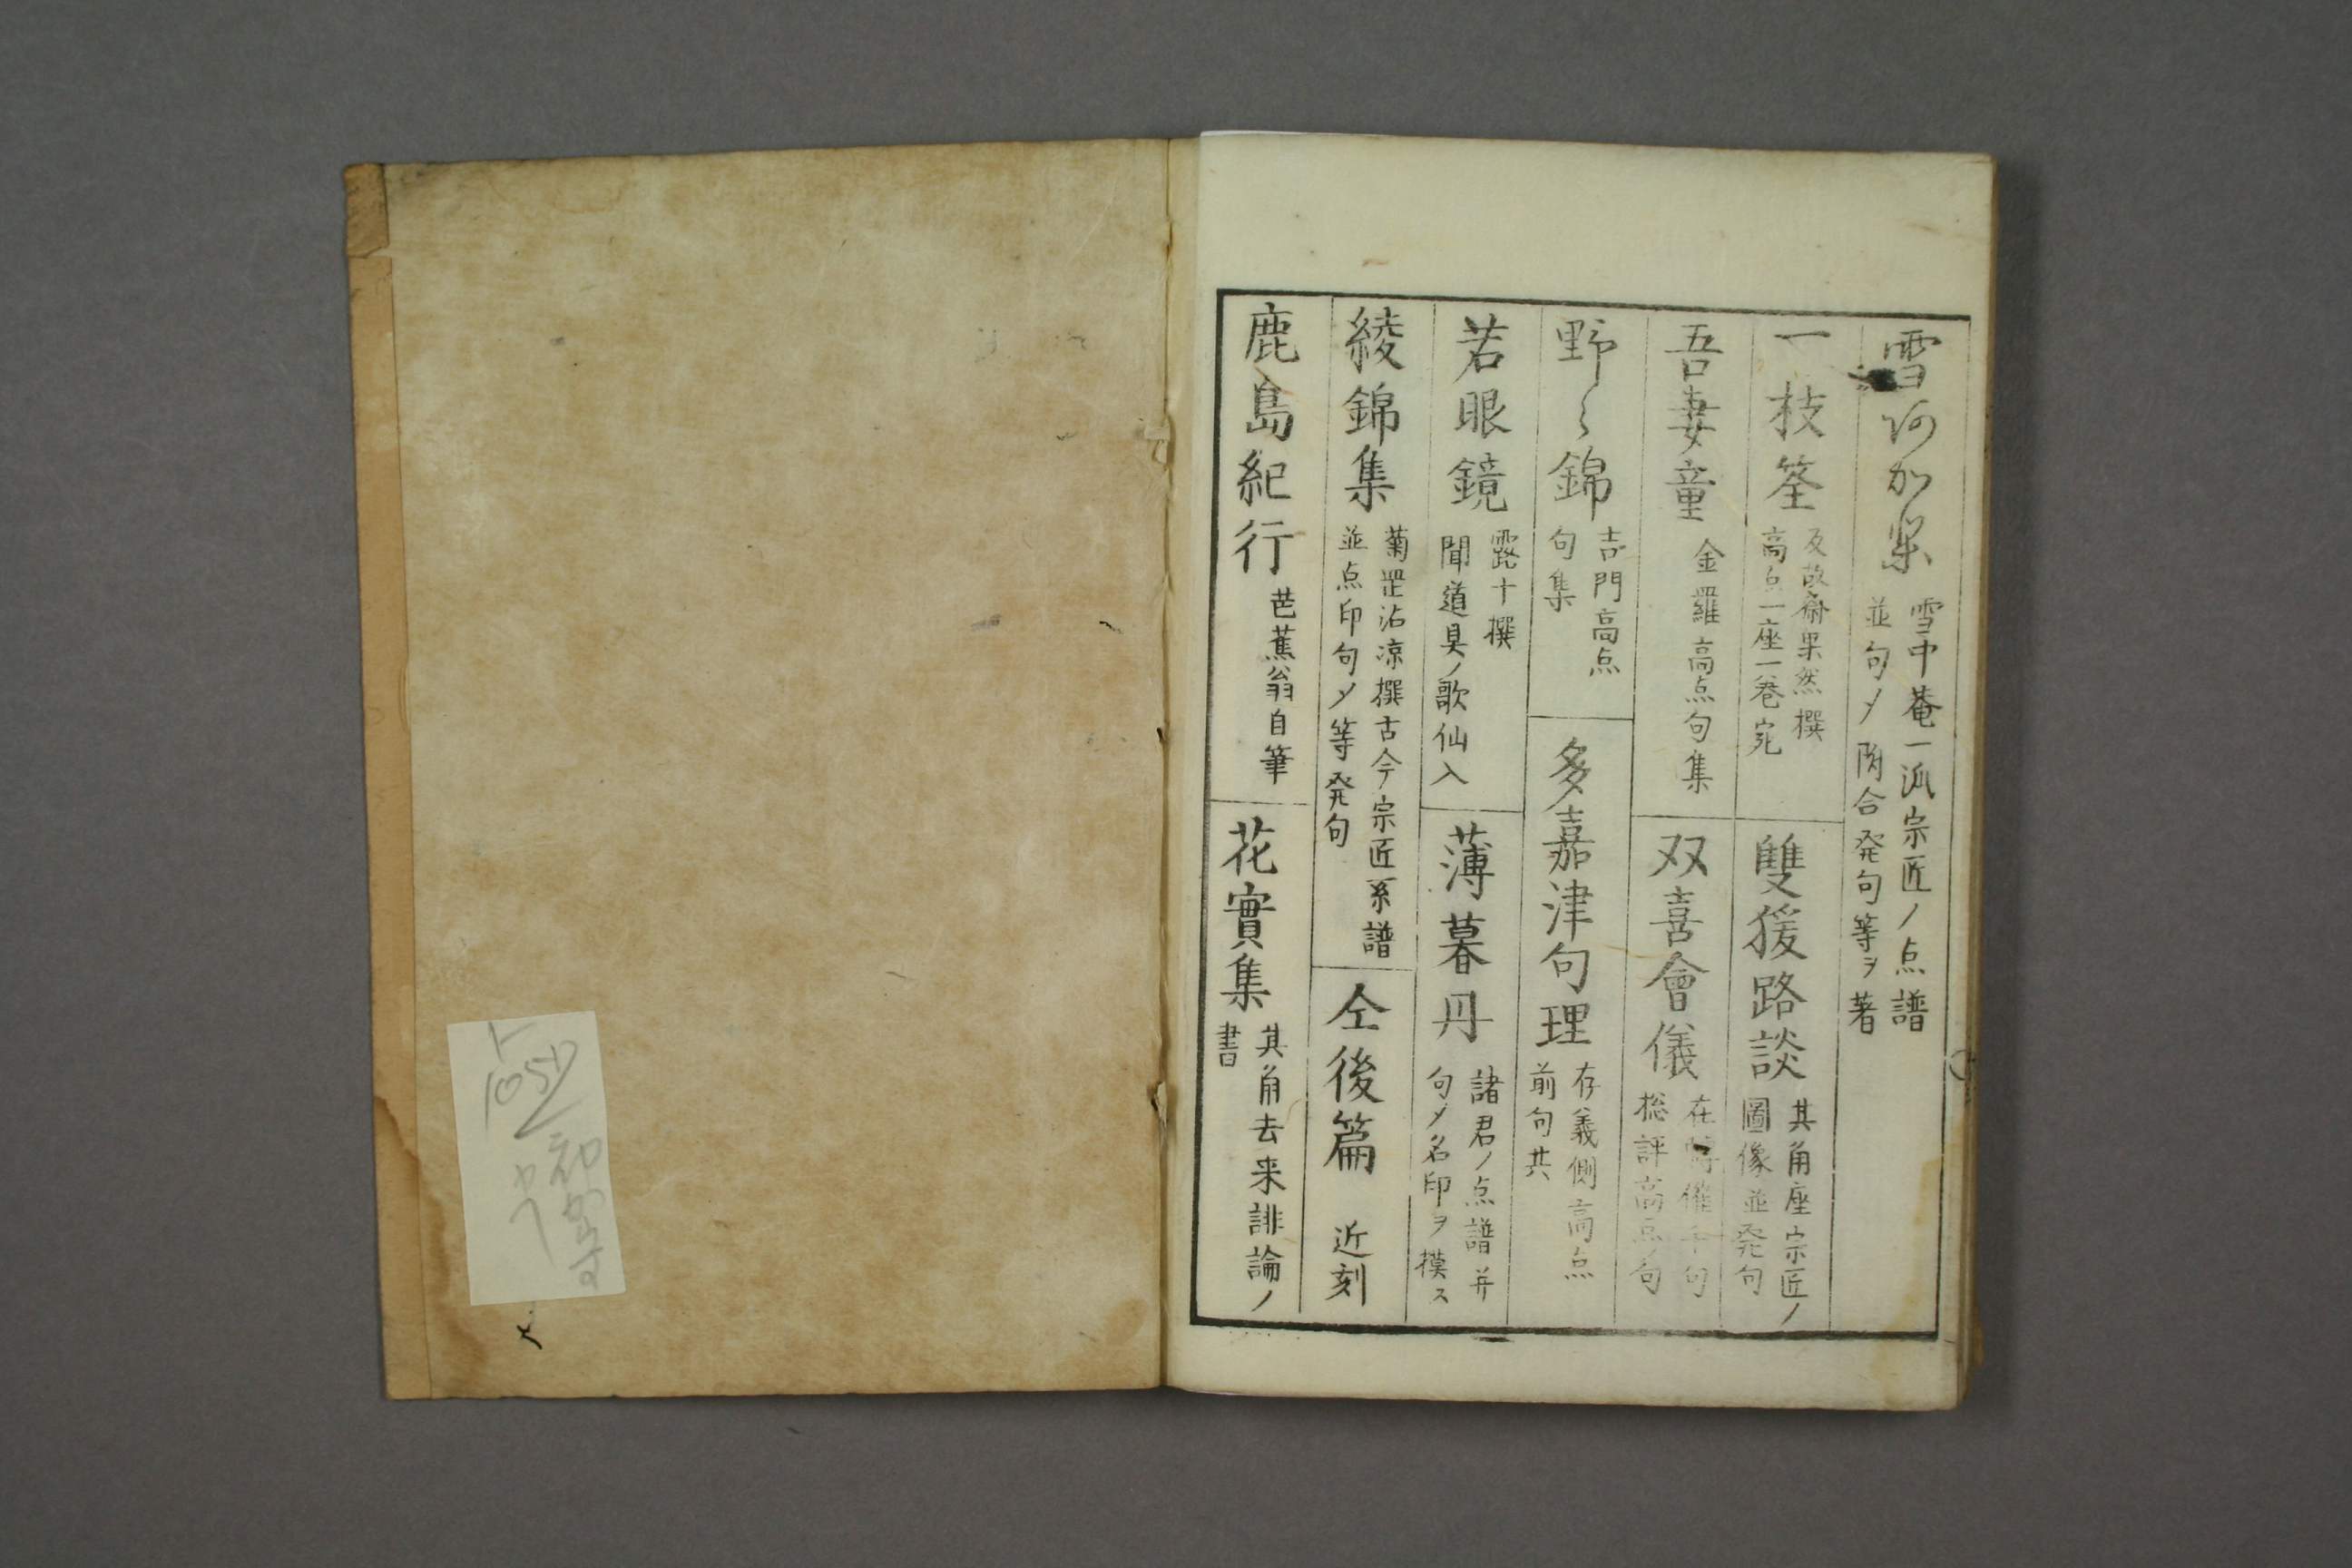 雪河加集
雪中菴一派宗匠ノ点譜
並句〆附合発句等ヲ著
一枝筌
反故斎果然撰
高点一座一巻宛
雙猨路談
其角座宗匠ノ
圖像並発句
吾妻童
金羅高点句集
双喜會儀
在轉催千句
総評高点ノ句
野〻錦
吉門高点
句集
多嘉津句理
存義側高点
前句共
若眼鏡
露十撰
聞道具ノ歌仙入
薄暮丹
諸君ノ点譜并
句〆名印ヲ摸ス
綾錦集
菊罡沾凉撰古今宗匠系譜
並点印句〆等発句
仝後篇
近刻
鹿島紀行
芭蕉翁自筆
花實集
其角去来誹論ノ
書